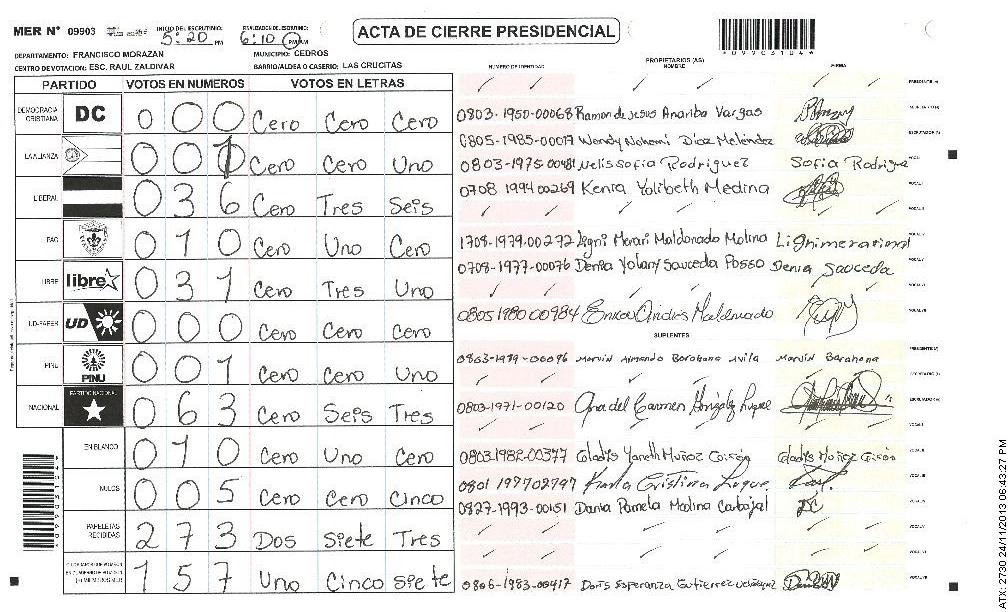 MER N° 09903 INICIO DEL ESCRUTINIO: 5:20 PM FINALIZACION DEL ESCRUTINIO: 6:10 PM
ACTA DE CIERRE PRESIDENCIAL
DEPARTAMENTO: FRANCISCO MORAZAN MUNICIPIO: CEDROS
CENTRO DE VOTACION: ESC. RAUL ZALDIVAR BARRIO/ALDEA O CASERIO: LAS CRUCITAS
PARTIDO VOTOS EN NUMEROS VOTOS EN LETRAS
DEMOCRACIA CRISTIANA DC 0 0 0 Cero Cero Cero
LA ALIANZA 0 0 1 Cero Cero Uno
LIBERAL 0 3 6 Cero Tres Seis
PAC 0 1 0 Cero Uno Cero
LIBRE libre 0 3 1 Cero Tres Uno
UD-FAPER UD 0 0 0 Cero Cero Cero
PINU PINU 0 0 1 Cero Cero Uno
NACIONAL PARTIDO NACIONAL 0 6 3 Cero Seis Tres
EN BLANCO 0 1 0 Cero Uno Cero
NULOS 0 0 5 Cero Cero Cinco
PAPELETAS RECIBIDAS 2 7 3 Dos Siete Tres
1 5 7 Uno Cinco Siete
NUMERO DE IDENTIDAD PROPIETARIOS (AS) NOMBRE FIRMA
0803-1950-00068 Ramon de Jesus Anariba Vargas
0805-1985-00017 Wendy Nohemi Diaz Melendez
0803-1975-00481 Melissofia Rodriguez Sofia Rodrigue
0708 1994 00269 Kenia Yolibeth Medina
1708-1979-00272 Ligni Merari Maldonado Molina
0708-1977-00076 Denia Yolany Sauceda Posso Denia Sauceda
0805 1980 00984 Maldonado
SUPLENTES
0803-1979-00096 Marvin Armando Barahona Avila Marvin Barahona
0803-1971-00120 Ana del Carmen
0803-1982-00377 Gladys Yaneth Muñoz Gladys Muñoz
0801 197702797 Karla Cristina
0827-1993-00151 Dania Pamela Medina Carbajal
0806-1983-00417 Doris Esperanza Gutierrez
*09903104*
ATX-2730 24/11/2013 06:43:27 PM